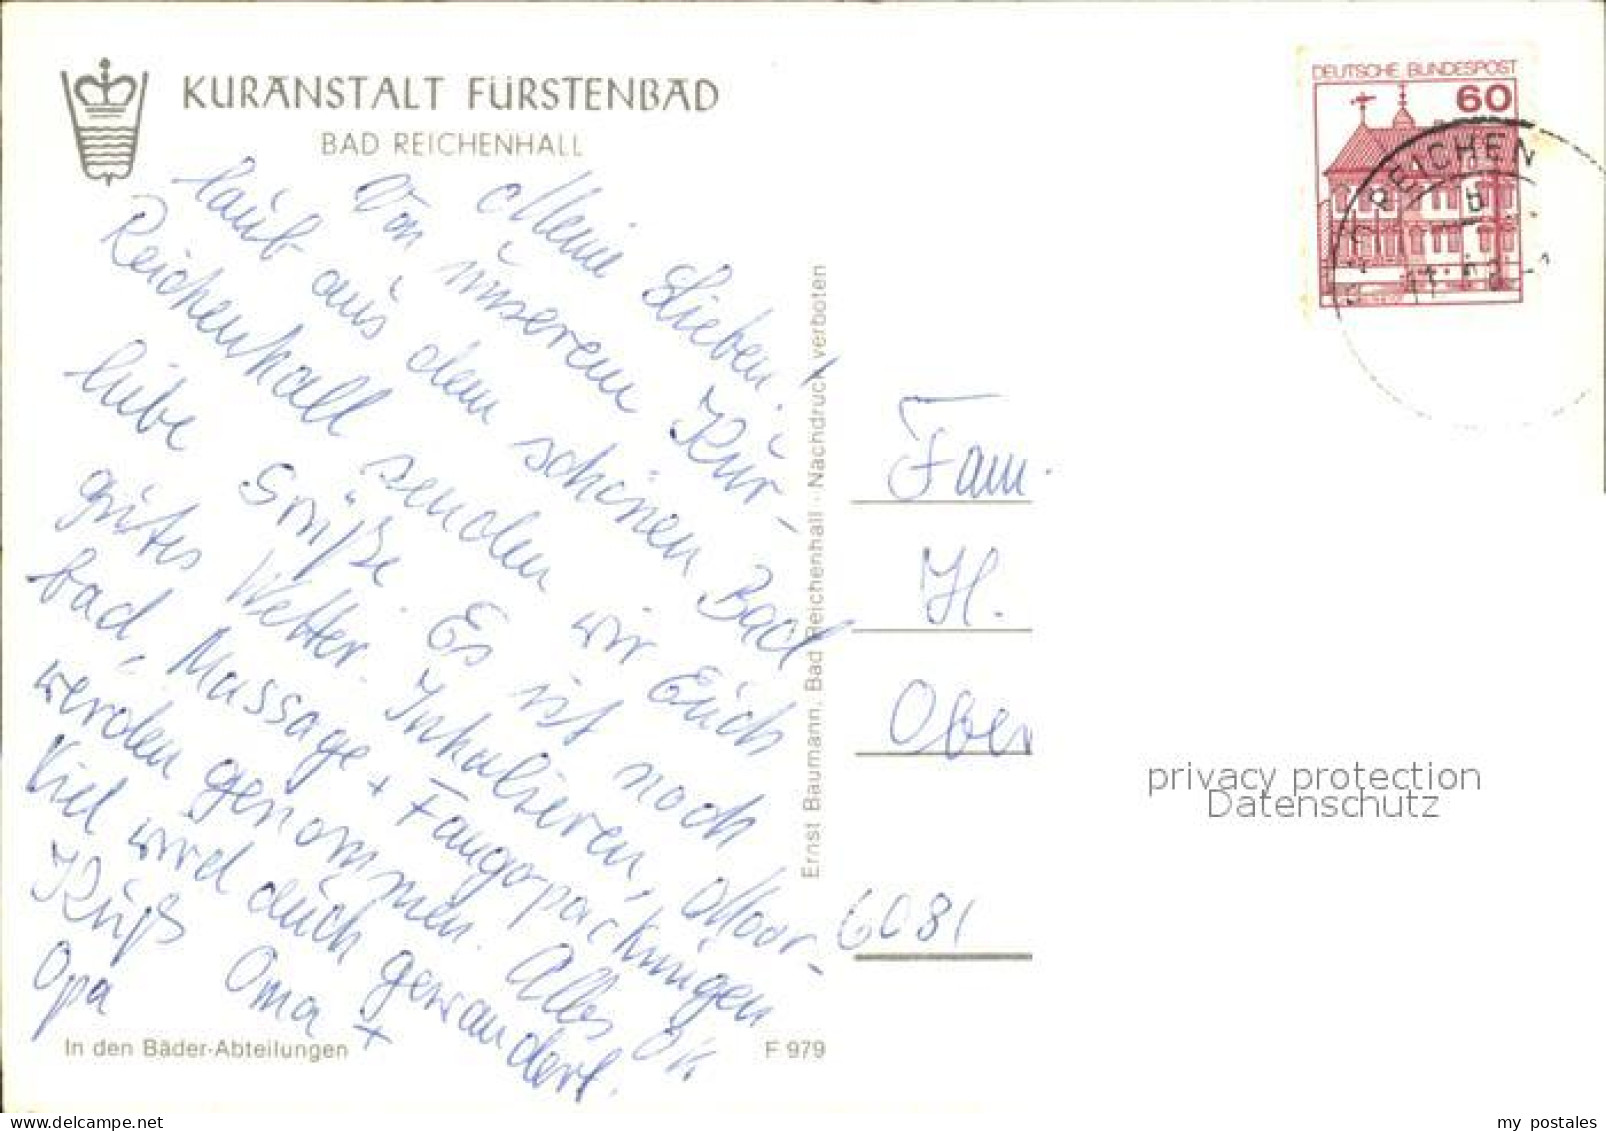 KURANSTALT FÜRSTENBAD
BAD REICHENHALL
Meine Lieben!
Von unserem Kur-
laub aus dem schönen Bad
Reichenhall senden wir Euch
liebe Grüße. Es ist noch
gutes Wetter. Inhalieren, Moor-
bad, Massage + Fangopackungen
werden genommen. Alles OK
Viel wird auch gewandert.
Kuß Oma +
Opa
In den Bäder-Abteilungen
F 979
Ernst Baumann, Bad Reichenhall · Nachdruck verboten
DEUTSCHE BUNDESPOST
60
REICHEN
Fam.
H.
Ober
6081
privacy protection
Datenschutz
my postales